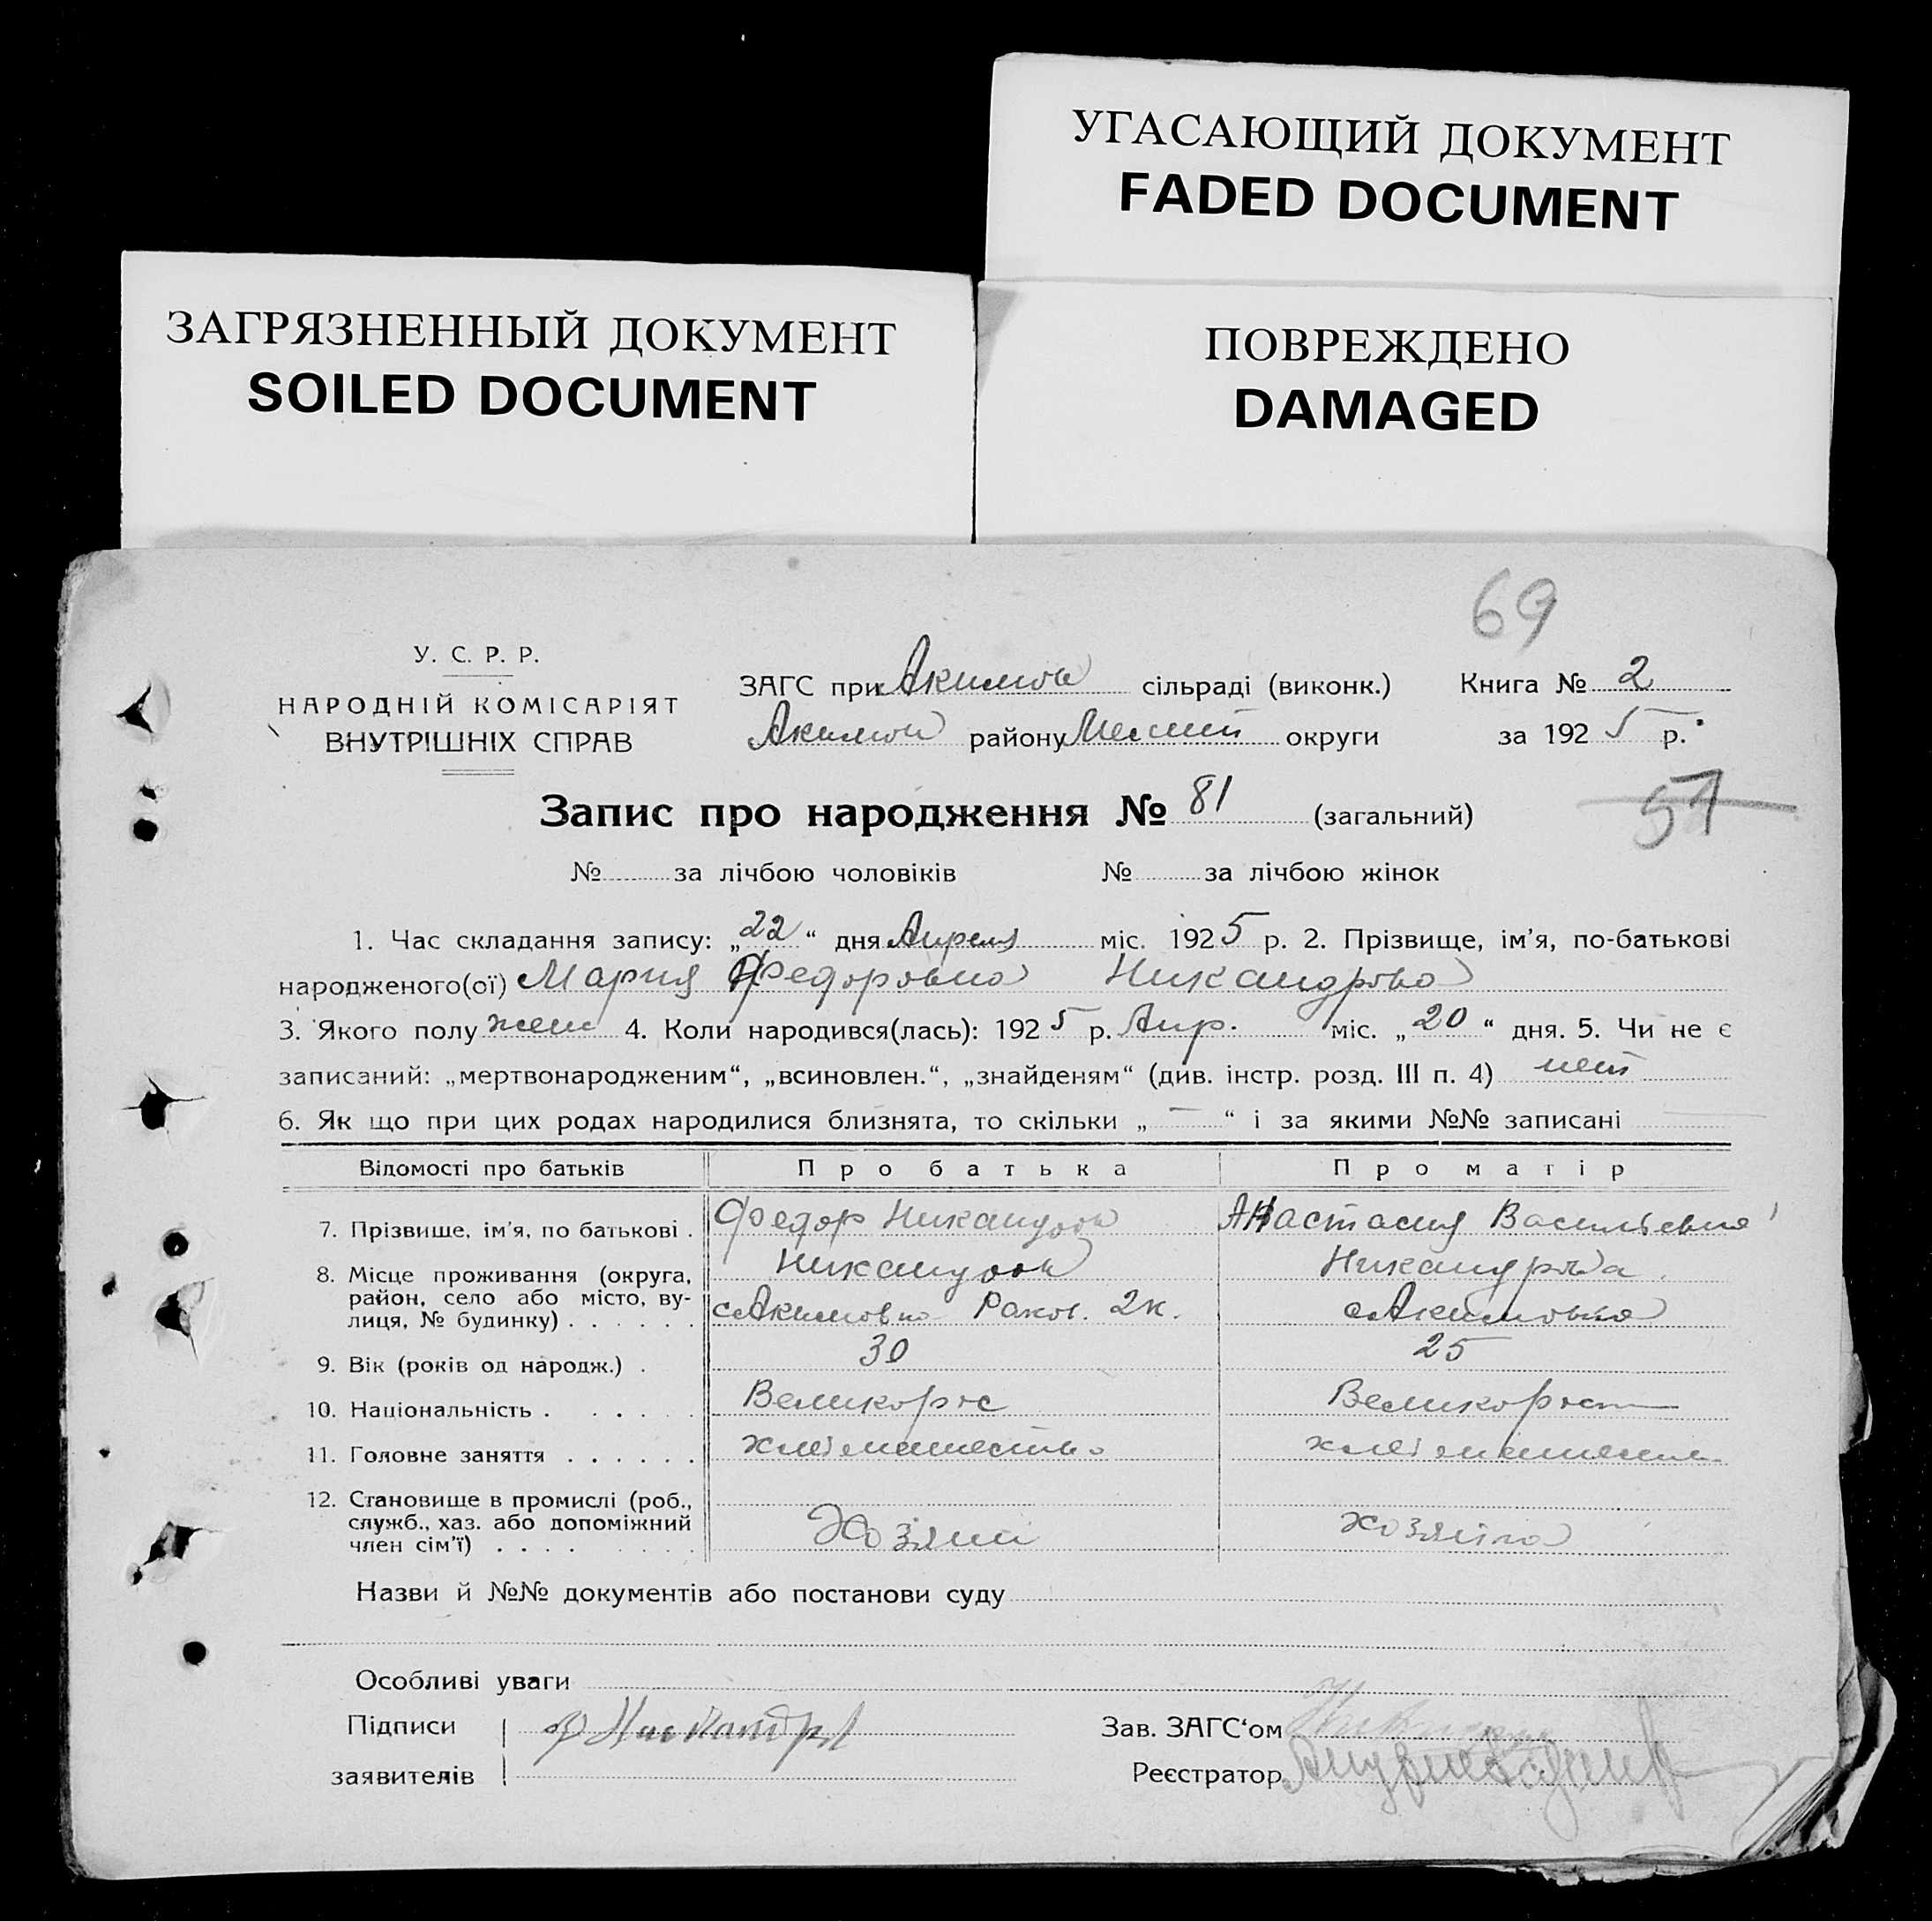 УГАСАЮЩИЙ ДОКУМЕНТ
FADED DOCUMENT
ЗАГРЯЗНЕННЫЙ ДОКУМЕНТ
SOILED DOCUMENT
ПОВРЕЖДЕНО
DAMAGED
69
У. С. Р. Р.
НАРОДНІЙ КОМІСАРІЯТ
ВНУТРІШНІХ СПРАВ
ЗАГС при Акимов сільраді (виконк.) Книга № 2
Акимов району округи за 1925 р.
57
Запис про народження № 81 (загальний)
№ за лічбою чоловіків № за лічбою жінок
1. Час складання запису: „22“ дня Апреля міс. 1925 р. 2. Прізвище, ім'я, по-батькові
народженого(ої) Мария Федоровна Никандрова
3. Якого полу жен 4. Коли народився(лась): 1925 р. Апр. міс. „20“ дня. 5. Чи не є
записаний: „мертвонародженим“, „всиновлен.“, „знайденям“ (див. інстр. розд. III п. 4) нет
6. Як що при цих родах народилися близнята, то скільки „—“ і за якими №№ записані
Відомості про батьків Про батька Про матір
7. Прізвище, ім'я, по батькові . Федор Никандров Анастасия Васильевна
Никандров Никандрова
8. Місце проживання (округа, район, село або місто, вулиця, № будинку) . . . . . . с Акимовка 2к. с Акимовка
9. Вік (років од народж.) . 30 25
10. Національність . . . . . Великорос Великорос
11. Головне заняття . . . . . . хлебопашество хлебопашество
12. Становище в промислі (роб., служб., хаз. або допоміжний член сім'ї) . . . . Хозяин хозяйка
Назви й №№ документів або постанови суду
Особливі уваги
Підписи заявителів Никандр
Зав. ЗАГС‘ом
Реєстратор